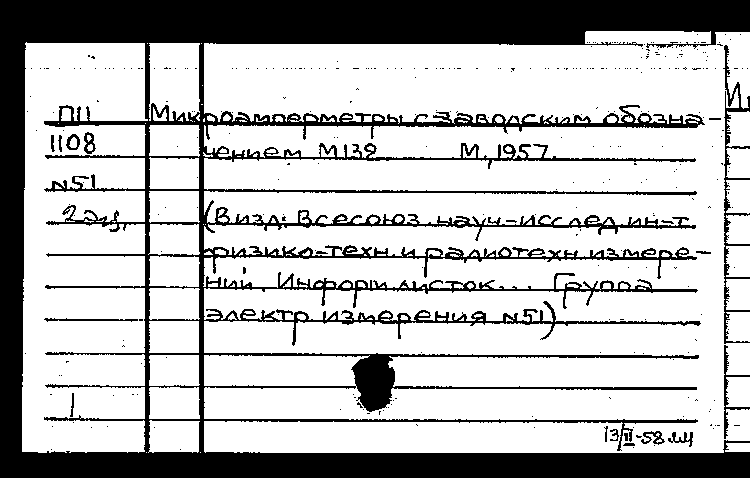 П11 Микроамперметры с заводским обозна-
1108 чением М132 М., 1957.
N51
2 экз. (В изд: Всесоюз. науч-исслед. ин-т
физико-техн. и радиотехн. измере-
ний. Информ. листок... Группа
электр. измерения N51)
1
13/II-58